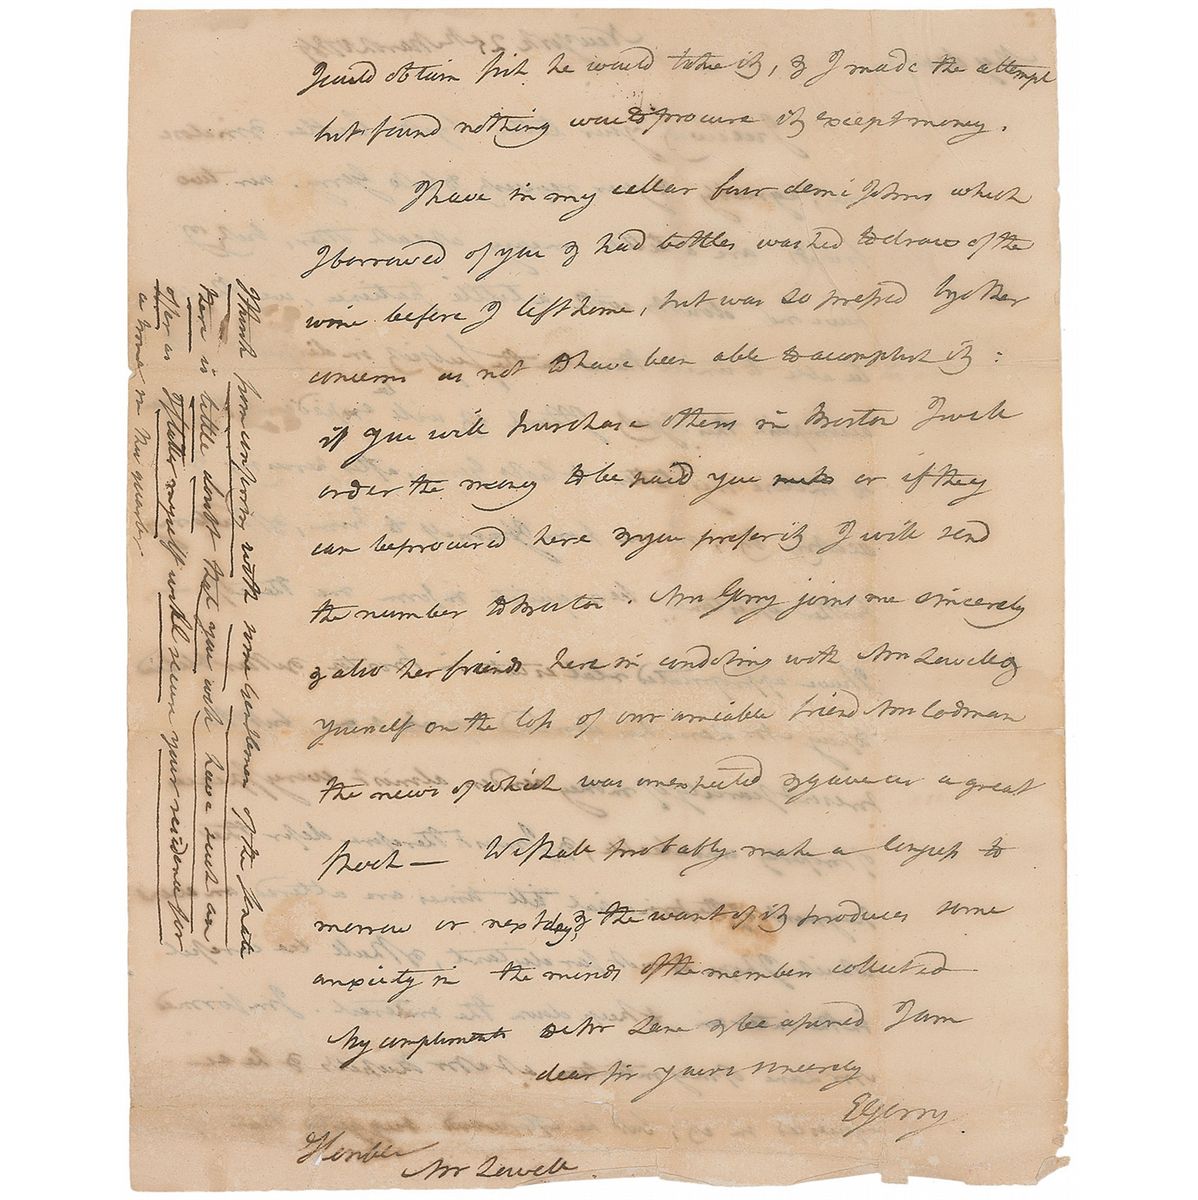 I could obtain fish he would take it, & I made the attempt
but found nothing would procure it except money.
I have in my cellar four demi Johns which
I borrowed of you & had bottles washed to draw of the
wine before I left home, but was so pressed by other
concerns as not to have been able to accomplish it:
if you will purchase others in Boston I will
order the money to be paid you or if they
can be procured here & you prefer it I will send
the number to Boston. Mrs Gerry joins me sincerely
& also her friends here in condoling with Mrs Lowell &
yourself on the loss of our amiable friend Mrs Codman
the news of which was unexpected & gave us a great
shock — We shall probably make a Congress to
morrow or next day, & the want of it produces some
anxiety in the minds of the members collected
My compliments to Mr Lane & be assured I am
dear sir yours sincerely
EGerry.
Honble
Mr Lowell
I think from conversn with some Gentlemen of the Senate
there is little doubt that you will have such an
offer as I flatter myself will secure your residence for
a home in this quarter